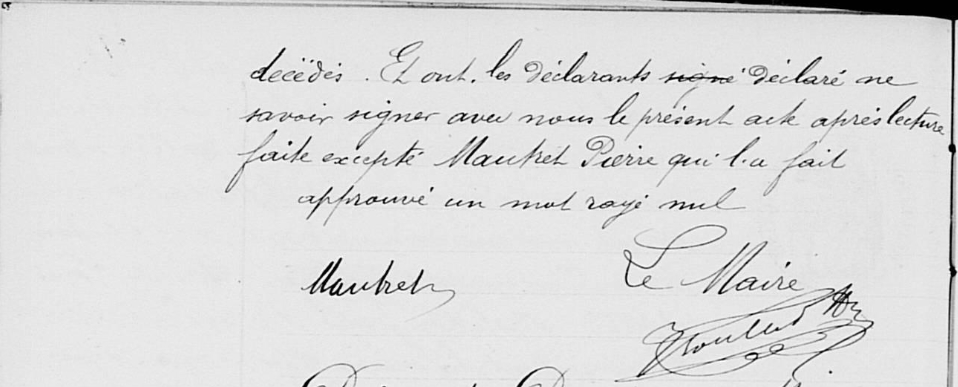 décédés. Et ont. les déclarants signé déclaré ne
savoir signer avec nous le présent acte après lecture
faite excepté Mautret Pierre qui l'a fait
approuvé un mot rayé nul
Mautret
Le Maire